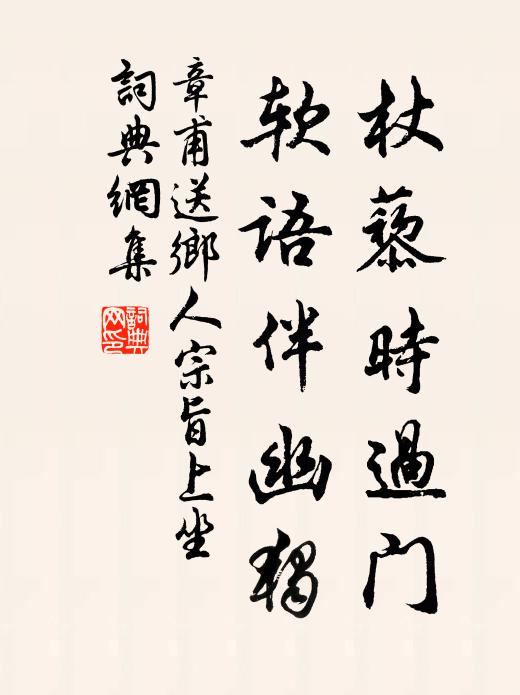 杖藜時過門
軟語伴幽獨
章甫送鄉人宗旨上坐
詞典網集
詞典网印